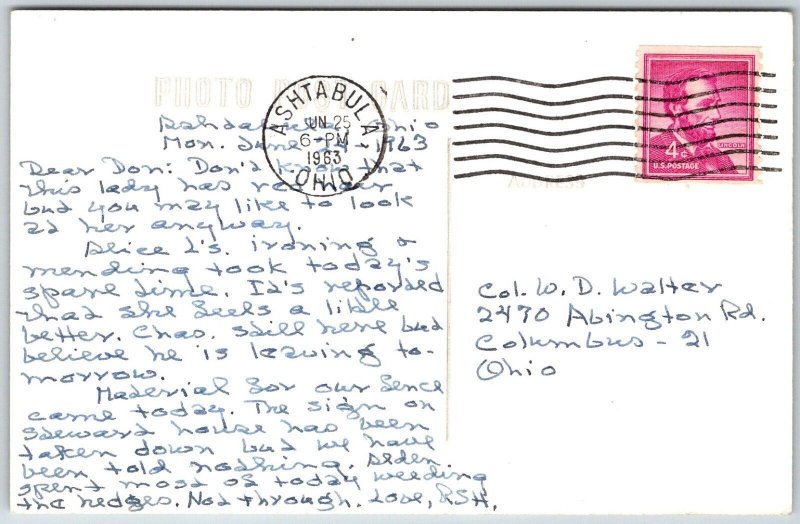 PHOTO POST CARD
ASHTABULA
JUN 25
6-PM
1963
OHIO
4¢
LINCOLN
U.S. POSTAGE
ADDRESS
Ashtabula, Ohio
Mon. June 1963
Dear Don: Don't know that
this lady has
but you may like to look
at her anyway.
Alice L's. ironing &
mending took today's
spare time. It's reported
that she feels a little
better. Chas. still here but
believe he is leaving to-
morrow.
Material for our fence
came today. The sign on
Steward house has been
taken down but we have
been told nothing.
spent most of today weeding
the hedges. Not through. Love, RSH.
Col. W. D. Walter
2470 Abington Rd.
Columbus - 21
Ohio